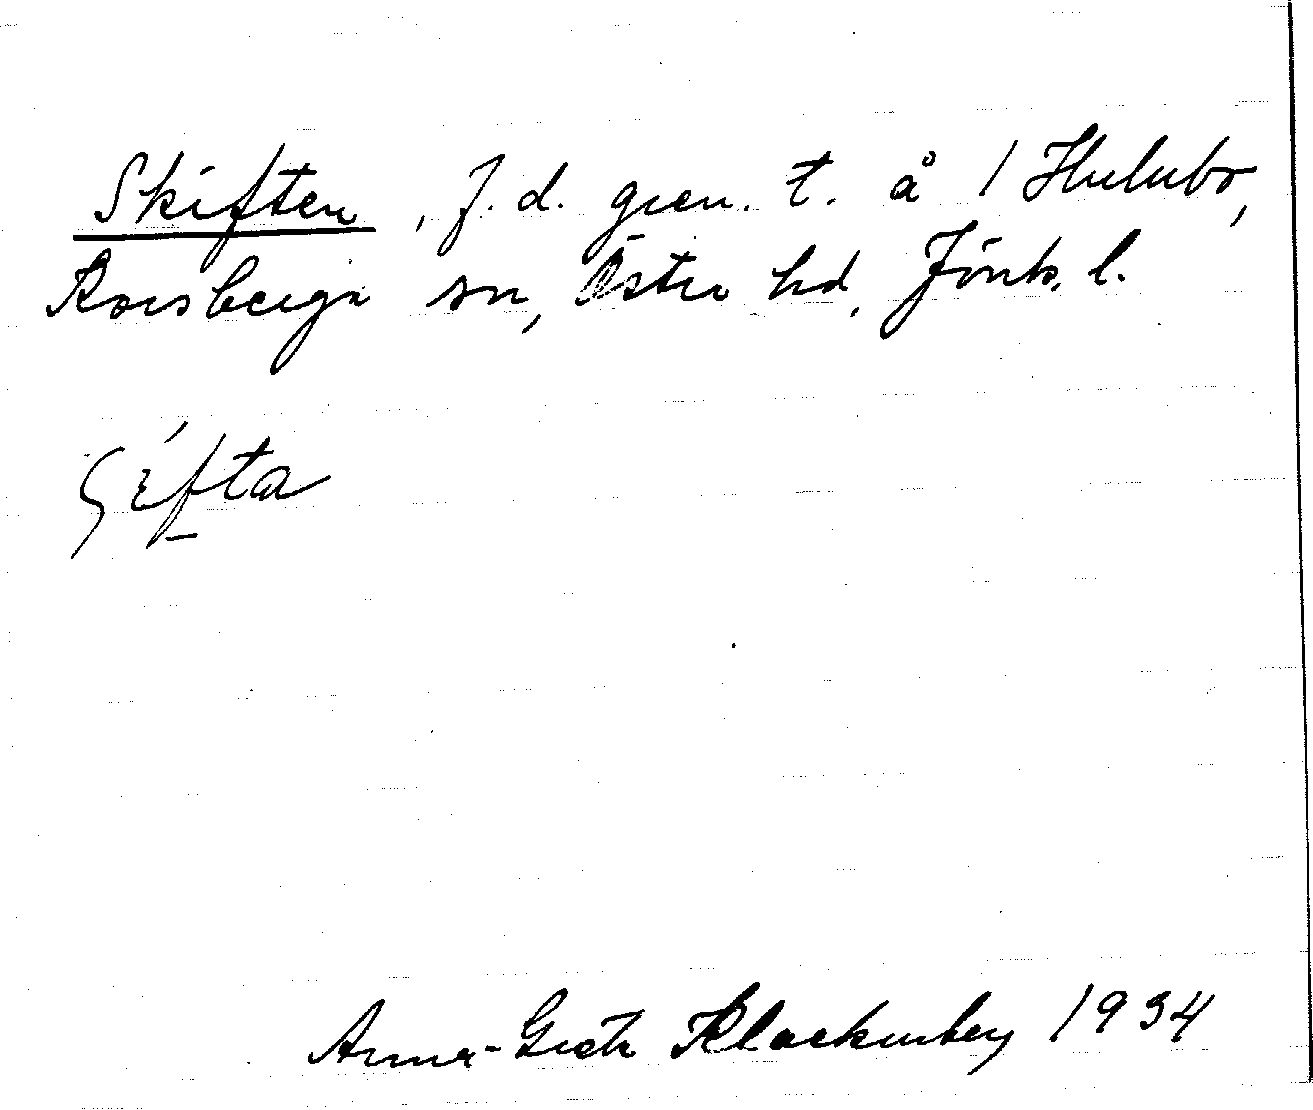 Skiften, f. d. gren. t. å / Hulubo,
Korsberga sn, Östra hd, Jönk. l.
ʃifta
Anna-Greta Klackenberg 1934